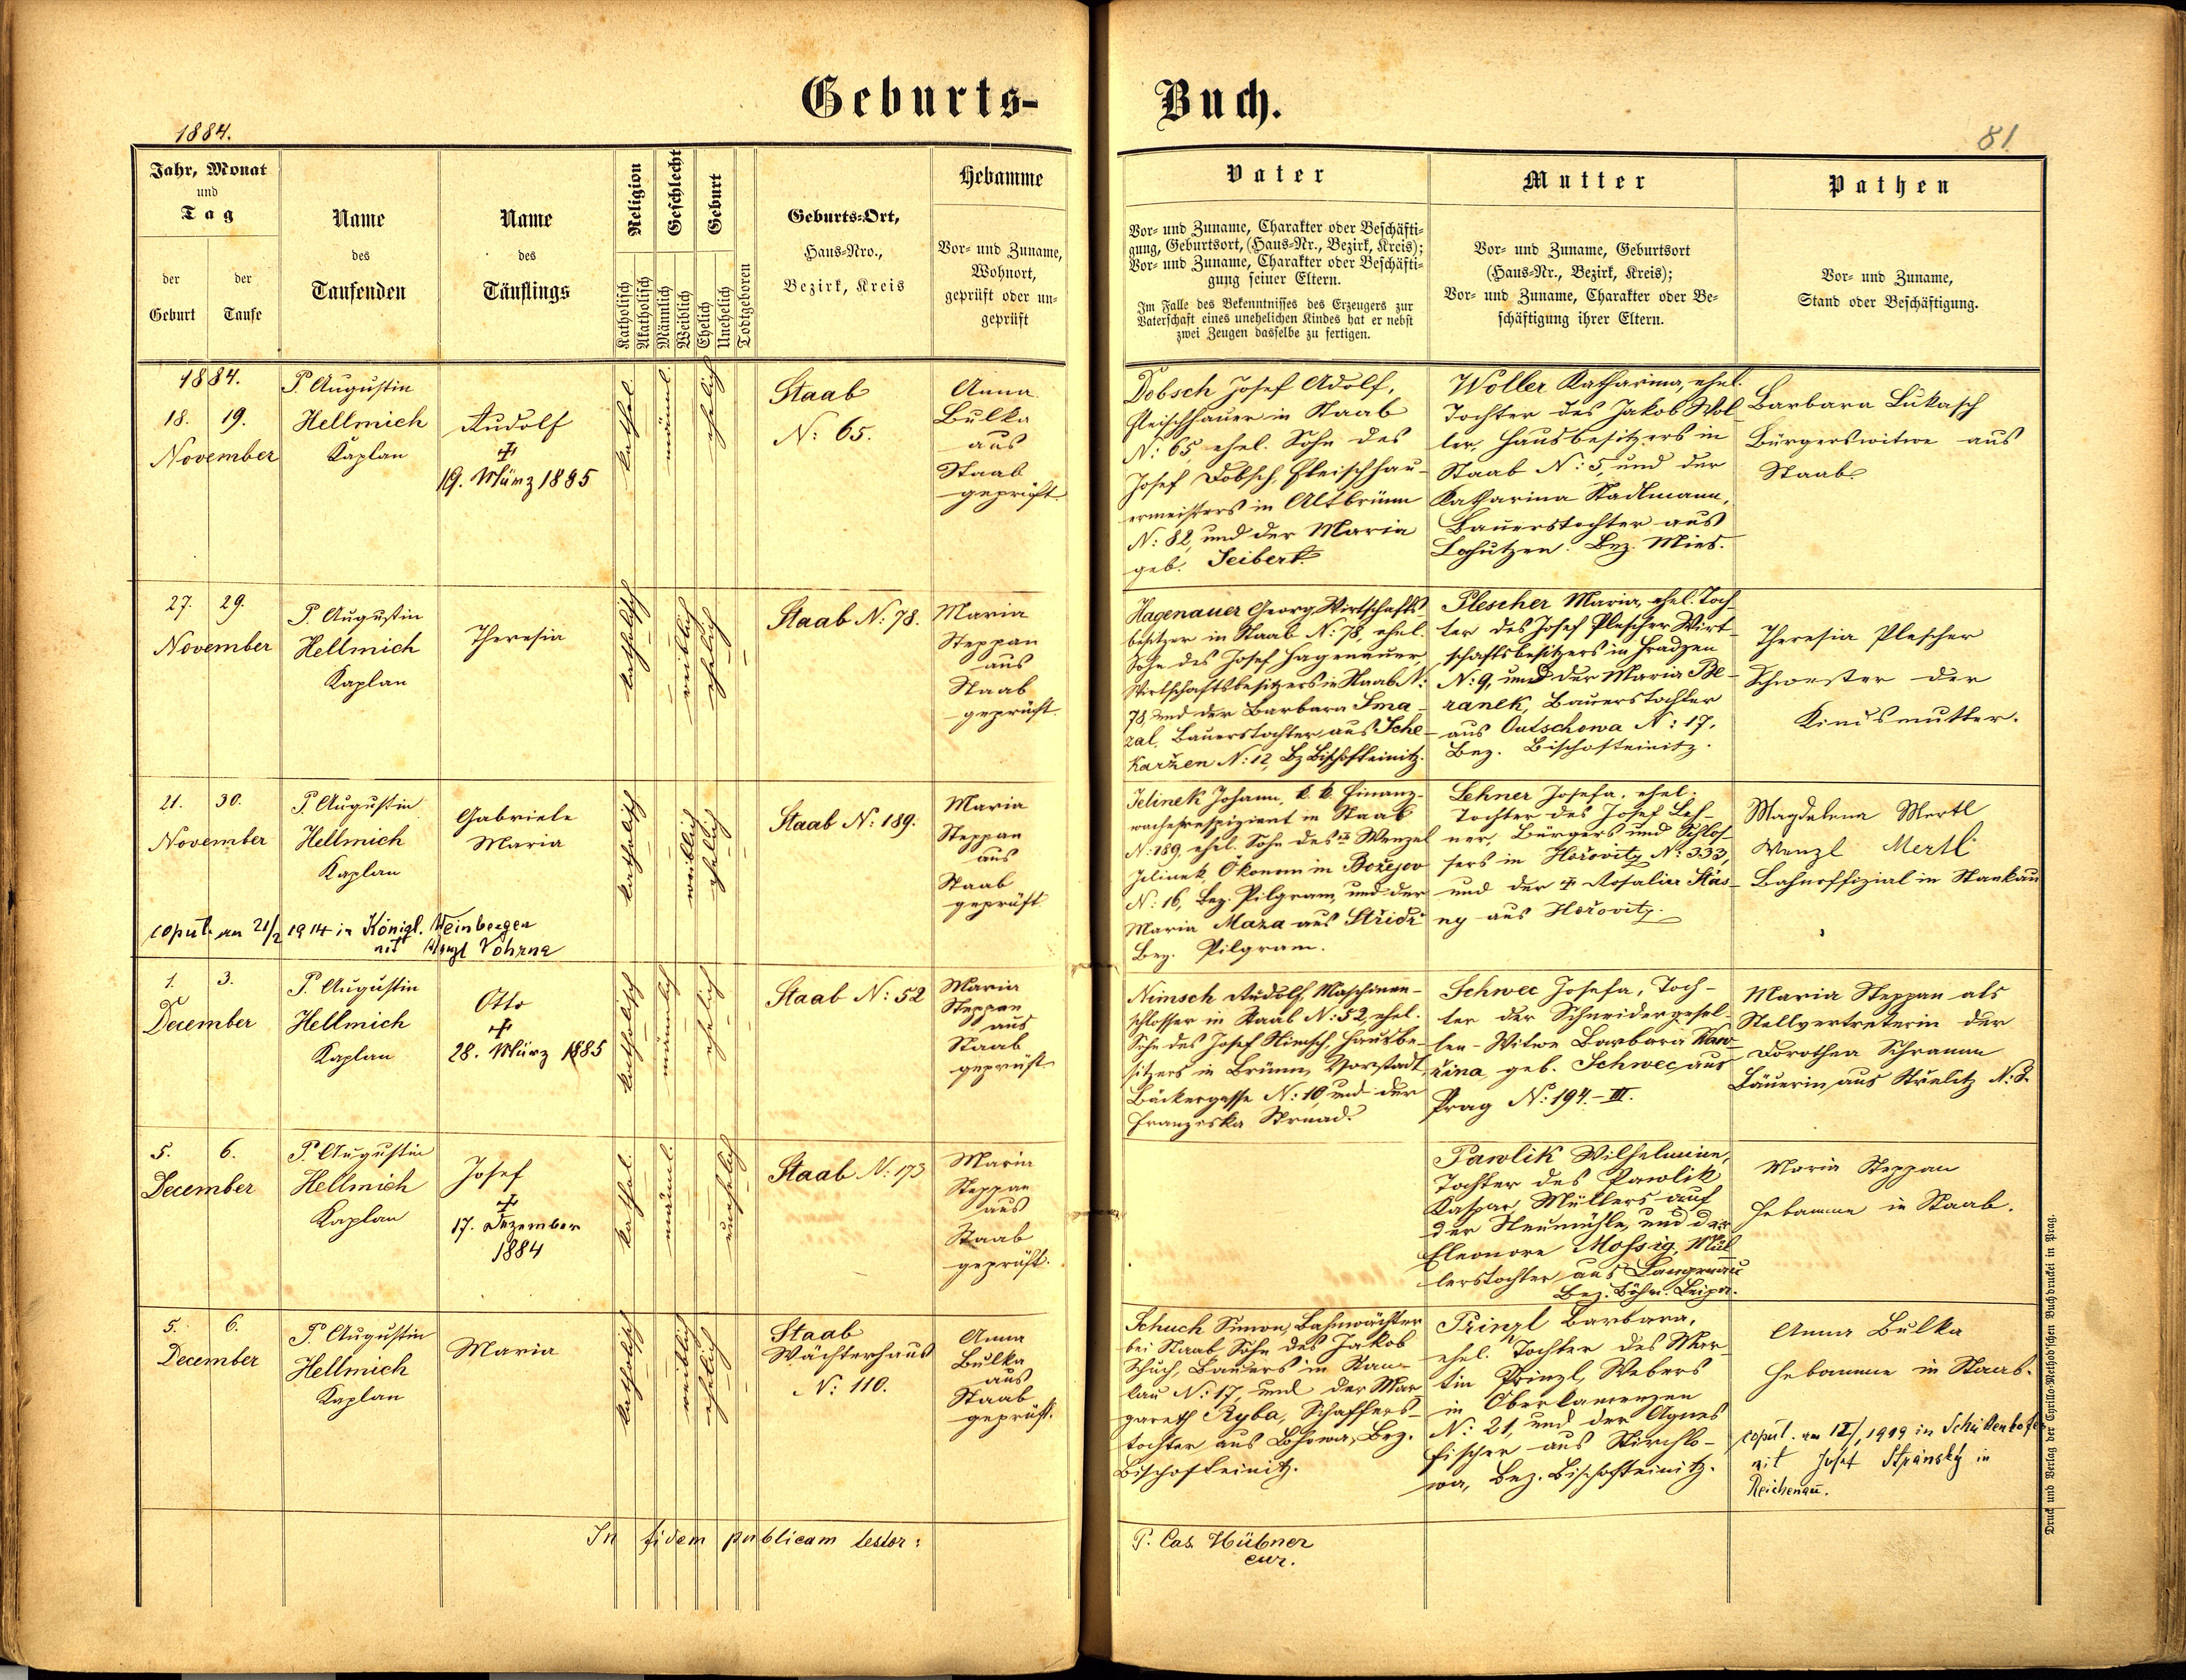 Geburts-Buch.
1884.
81
Jahr, Monat
und
Tag
der
Geburt
der
Taufe
Name
des
Taufenden
Name
des
Täuflings
Religion
Katholisch
Akatholisch
Geschlecht
Männlich
Weiblich
Geburt
Ehelich
Unehelich
Todtgeboren
Geburts-Ort,
Haus-Nro.,
Bezirk, Kreis
Hebamme
Vor- und Zuname,
Wohnort,
geprüft oder un-
geprüft
Vater
Vor- und Zuname, Charakter oder Beschäfti-
gung, Geburtsort, (Haus-Nr., Bezirk, Kreis);
Vor- und Zuname, Charakter oder Beschäfti-
gung seiner Eltern.
Im Falle des Bekenntnisses des Erzeugers zur
Vaterschaft eines unehelichen Kindes hat er nebst
zwei Zeugen dasselbe zu fertigen.
Mutter
Vor- und Zuname, Geburtsort
(Haus-Nr., Bezirk, Kreis);
Vor- und Zuname, Charakter oder Be-
schäftigung ihrer Eltern.
Pathen
Vor- und Zuname,
Stand oder Beschäftigung.
1884.
18. 19.
November
P. Augustin
Hellmich
Kaplan
Rudolf
19. März 1885
kathol.
männl.
ehelich
Staab
N: 65.
Anna
Bulka
aus
Staab
geprüft
Dobsch Josef Adolf,
Fleischhauer in Staab
N: 65 ehel. Sohn des
Josef Dobsch, Fleischhau-
ermeisters in Altbrünn
N: 82, und der Maria
geb. Seibert.
Woller Katharina, ehel.
Tochter des Jakob Wol-
ler, Hausbesitzers in
Staab N: 5, und der
Katharina Stadlmann,
Bauerstochter aus
Lohutzen. Bez. Mies.
Barbara Lukasch
Bürgerswitwe aus
Staab.
27. 29.
November
P. Augustin
Hellmich
Kaplan
Theresia
katholisch
weiblich
ehelich
Staab N: 78.
Maria
Steppan
aus
Staab
geprüft.
Hagenauer Georg, Wirtschafts-
besitzer in Staab N: 78, ehel.
Sohn des Josef Hagenauer,
Wirtschaftsbesitzers in Staab N:
78, und der Barbara Sma-
zal, Bauerstochter aus Sche-
karžen N: 12, Bz Bischofteinitz.
Plescher Maria, ehel. Toch-
ter des Josef Plescher Wirt-
schaftsbesitzers in Hradzen
N: 9, und der Maria Be-
ranek, Bauerstochter
aus Outschowa N: 17.
Bez. Bischofteinitz.
Theresia Plescher
Schwester der
Kindsmutter.
21. 30.
November
P. Augustin
Hellmich
Kaplan
Gabriele
Maria
katholisch
weiblich
ehelich
Staab N: 189.
Maria
Steppan
aus
Staab
geprüft
Jelinek Johann, k. k. Finanz-
wacherespizient in Staab
N: 189, ehel. Sohn des Wenzel
Jelinek, Ökonom in Božejov
N: 16, Bez. Pilgram, und der
Maria Maza aus Střidř
Bez. Pilgram.
Lehner Josefa, ehel.
Tochter des Josef Leh-
ner, Bürgers und Schlos-
sers in Hořovitz N: 333,
und der Rosalia Stás-
ny aus Hořovitz.
Magdalena Mertl
Wenzl Mertl
Bahnoffizial in Stankau
copul. am 21/2 1914 in Königl. Weinbergen
mit Wenzl Vohrna
1. 3.
December
P. Augustin
Hellmich
Kaplan
Otto
28. März 1885
katholisch
männlich
ehelich
Staab N: 52
Maria
Steppan
aus
Staab
geprüft
Nimsch Rudolf, Maschinen-
schlosser in Staab N: 52, ehel.
Sohn des Josef Nimsch, Hausbe-
sitzers in Brünn, Vorstadt,
Bäckergasse N: 10, und der
Franziska Strnad.
Schwec Josefa, Toch-
ter der Schneidergesel-
len-Witwe Barbara
geb. Schwec, aus
Prag N: 194-III.
Maria Steppan als
Stellvertreterin der
Dorothea Schramm
Bäuerin aus Strelitz N: 8.
5. 6.
December
P. Augustin
Hellmich
Kaplan
Josef
17. Dezember
1884
kathol.
männl.
unehelich
Staab N: 173
Maria
Steppan
aus
Staab
geprüft.
Pawlik Wilhelmine,
Tochter des Pawlik
Kaspar, Müllers auf
der Neumühle, und der
Eleonore Mossig, Mül-
lerstochter aus Langenau
Bez. Böhm. Leipa.
Maria Steppan
Hebamme in Staab.
5. 6.
December
P. Augustin
Hellmich
Kaplan
Maria
katholisch
weiblich
ehelich
Staab
Wächterhaus
N: 110.
Anna
Bulka
aus
Staab
geprüft.
Schuch Simon, Bahnwächter
bei Staab, Sohn des Jakob
Schuch, Bauers in Ram-
lau N: 17, und der Mar-
gareth Ryba, Schaffers-
tochter aus Lohowa, Bez.
Bischofteinitz.
Prinzl Barbara,
ehel. Tochter des Mar-
tin Prinzl, Webers
in Oberkamenzen
N: 21, und der Agnes
Fischer aus
wa, Bez. Bischofteinitz.
Anna Bulka
Hebamme in Staab.
copul. am 1919 in Schüttenhofen
mit Josef Stránský in
Reichenau.
In fidem publicam testor:
P. Cas. Hübner
cur.
Druck und Verlag der Cyrillo-Method'schen Buchdruckei in Prag.